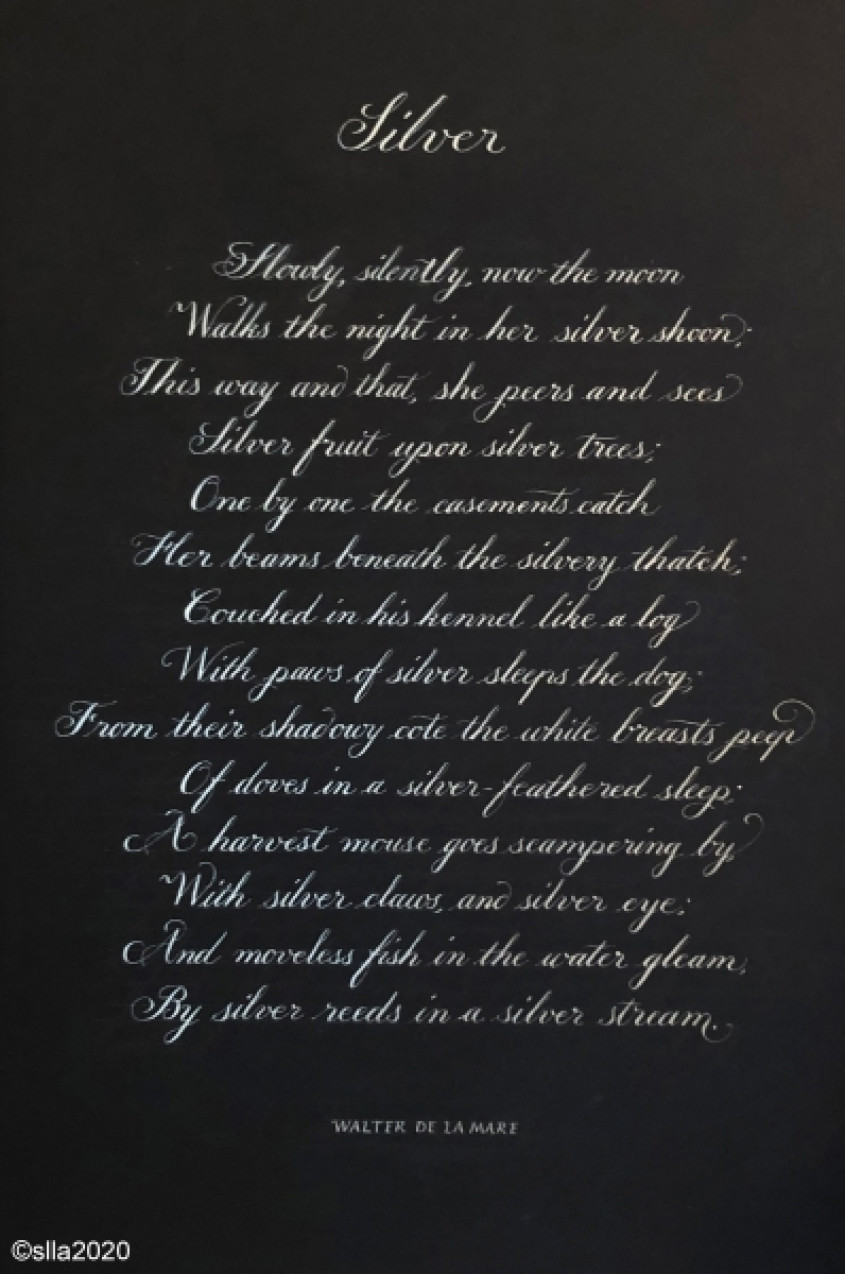 Silver
Slowly, silently, now the moon
Walks the night in her silver shoon;
This way and that, she peers and sees
Silver fruit upon silver trees;
One by one the casements catch
Her beams beneath the silvery thatch;
Couched in his kennel like a log
With paws of silver sleeps the dog;
From their shadowy cote the white breasts peep
Of doves in a silver-feathered sleep;
A harvest mouse goes scampering by
With silver claws, and silver eye;
And moveless fish in the water gleam,
By silver reeds in a silver stream.
WALTER DE LA MARE
©slla2020